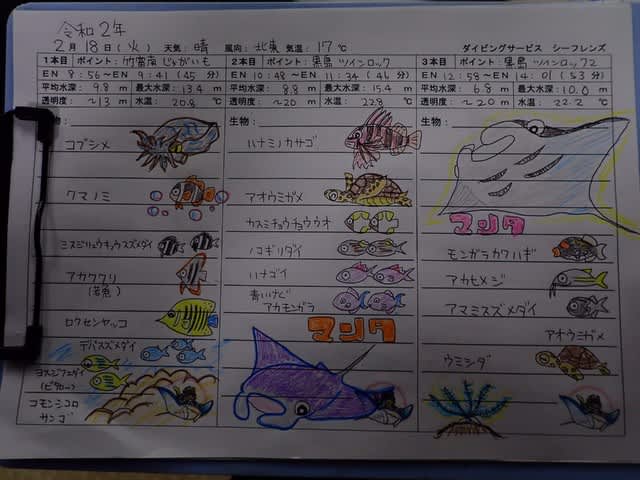 令和2年
2月18日(火) 天気:晴 風向:北東 気温:17℃ ダイビングサービス シーフレンズ
1本目 ポイント:竹富南じゃがいも
EN 8:56～EX 9:41 (45分)
平均水深: 9.8 m 最大水深: 13.4 m
透明度: ～13 m 水温: 20.8 ℃
生物:
コブシメ
クマノミ
ミスジリュウキュウスズメダイ
アカククリ
(若魚)
ロクセンヤッコ
デバスズメダイ
ヨスジフエダイ
コモンシコロ
サンゴ
2本目 ポイント:黒島ツインロック
EN 10:48～EN 11:34 (46分)
平均水深: 8.8 m 最大水深: 15.4 m
透明度: ～20 m 水温: 22.8 ℃
生物:
ハナミノカサゴ
アオウミガメ
カスミチョウチョウウオ
ノコギリダイ
ハナゴイ
青いけど
アカモンガラ
マンタ
3本目 ポイント:黒島ツインロック2
EN 12:58～EN 14:01 (63分)
平均水深: 6.8 m 最大水深: 10.0 m
透明度: ～20 m 水温: 22.2 ℃
生物:
マンタ
モンガラカワハギ
アカヒメジ
アマミスズメダイ
アオウミガメ
ウミシダ